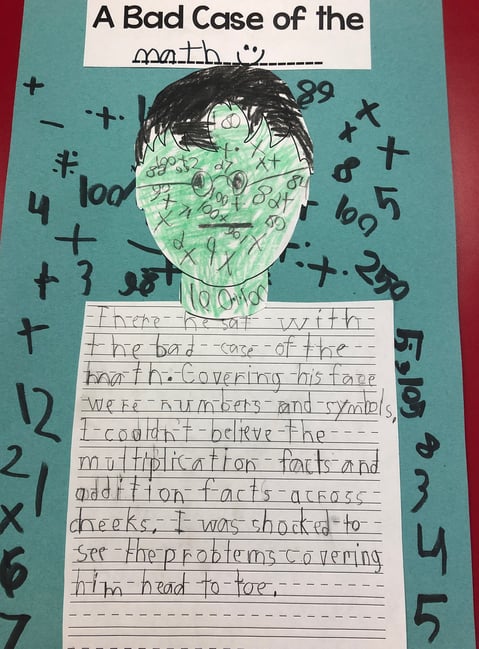 A Bad Case of the
math
89
+
- ÷ + x
x +
* 8
100 5
4 100
+
+ 3 98 + ÷ + 250
100,100
There he sat with
the bad case of the
math. Covering his face
were numbers and symbols.
I couldn't believe the
multiplication facts and
addition facts across
cheeks. I was shocked to
see the problems covering
him head to toe.
+
12
21
x
6
7
8
3
4
5